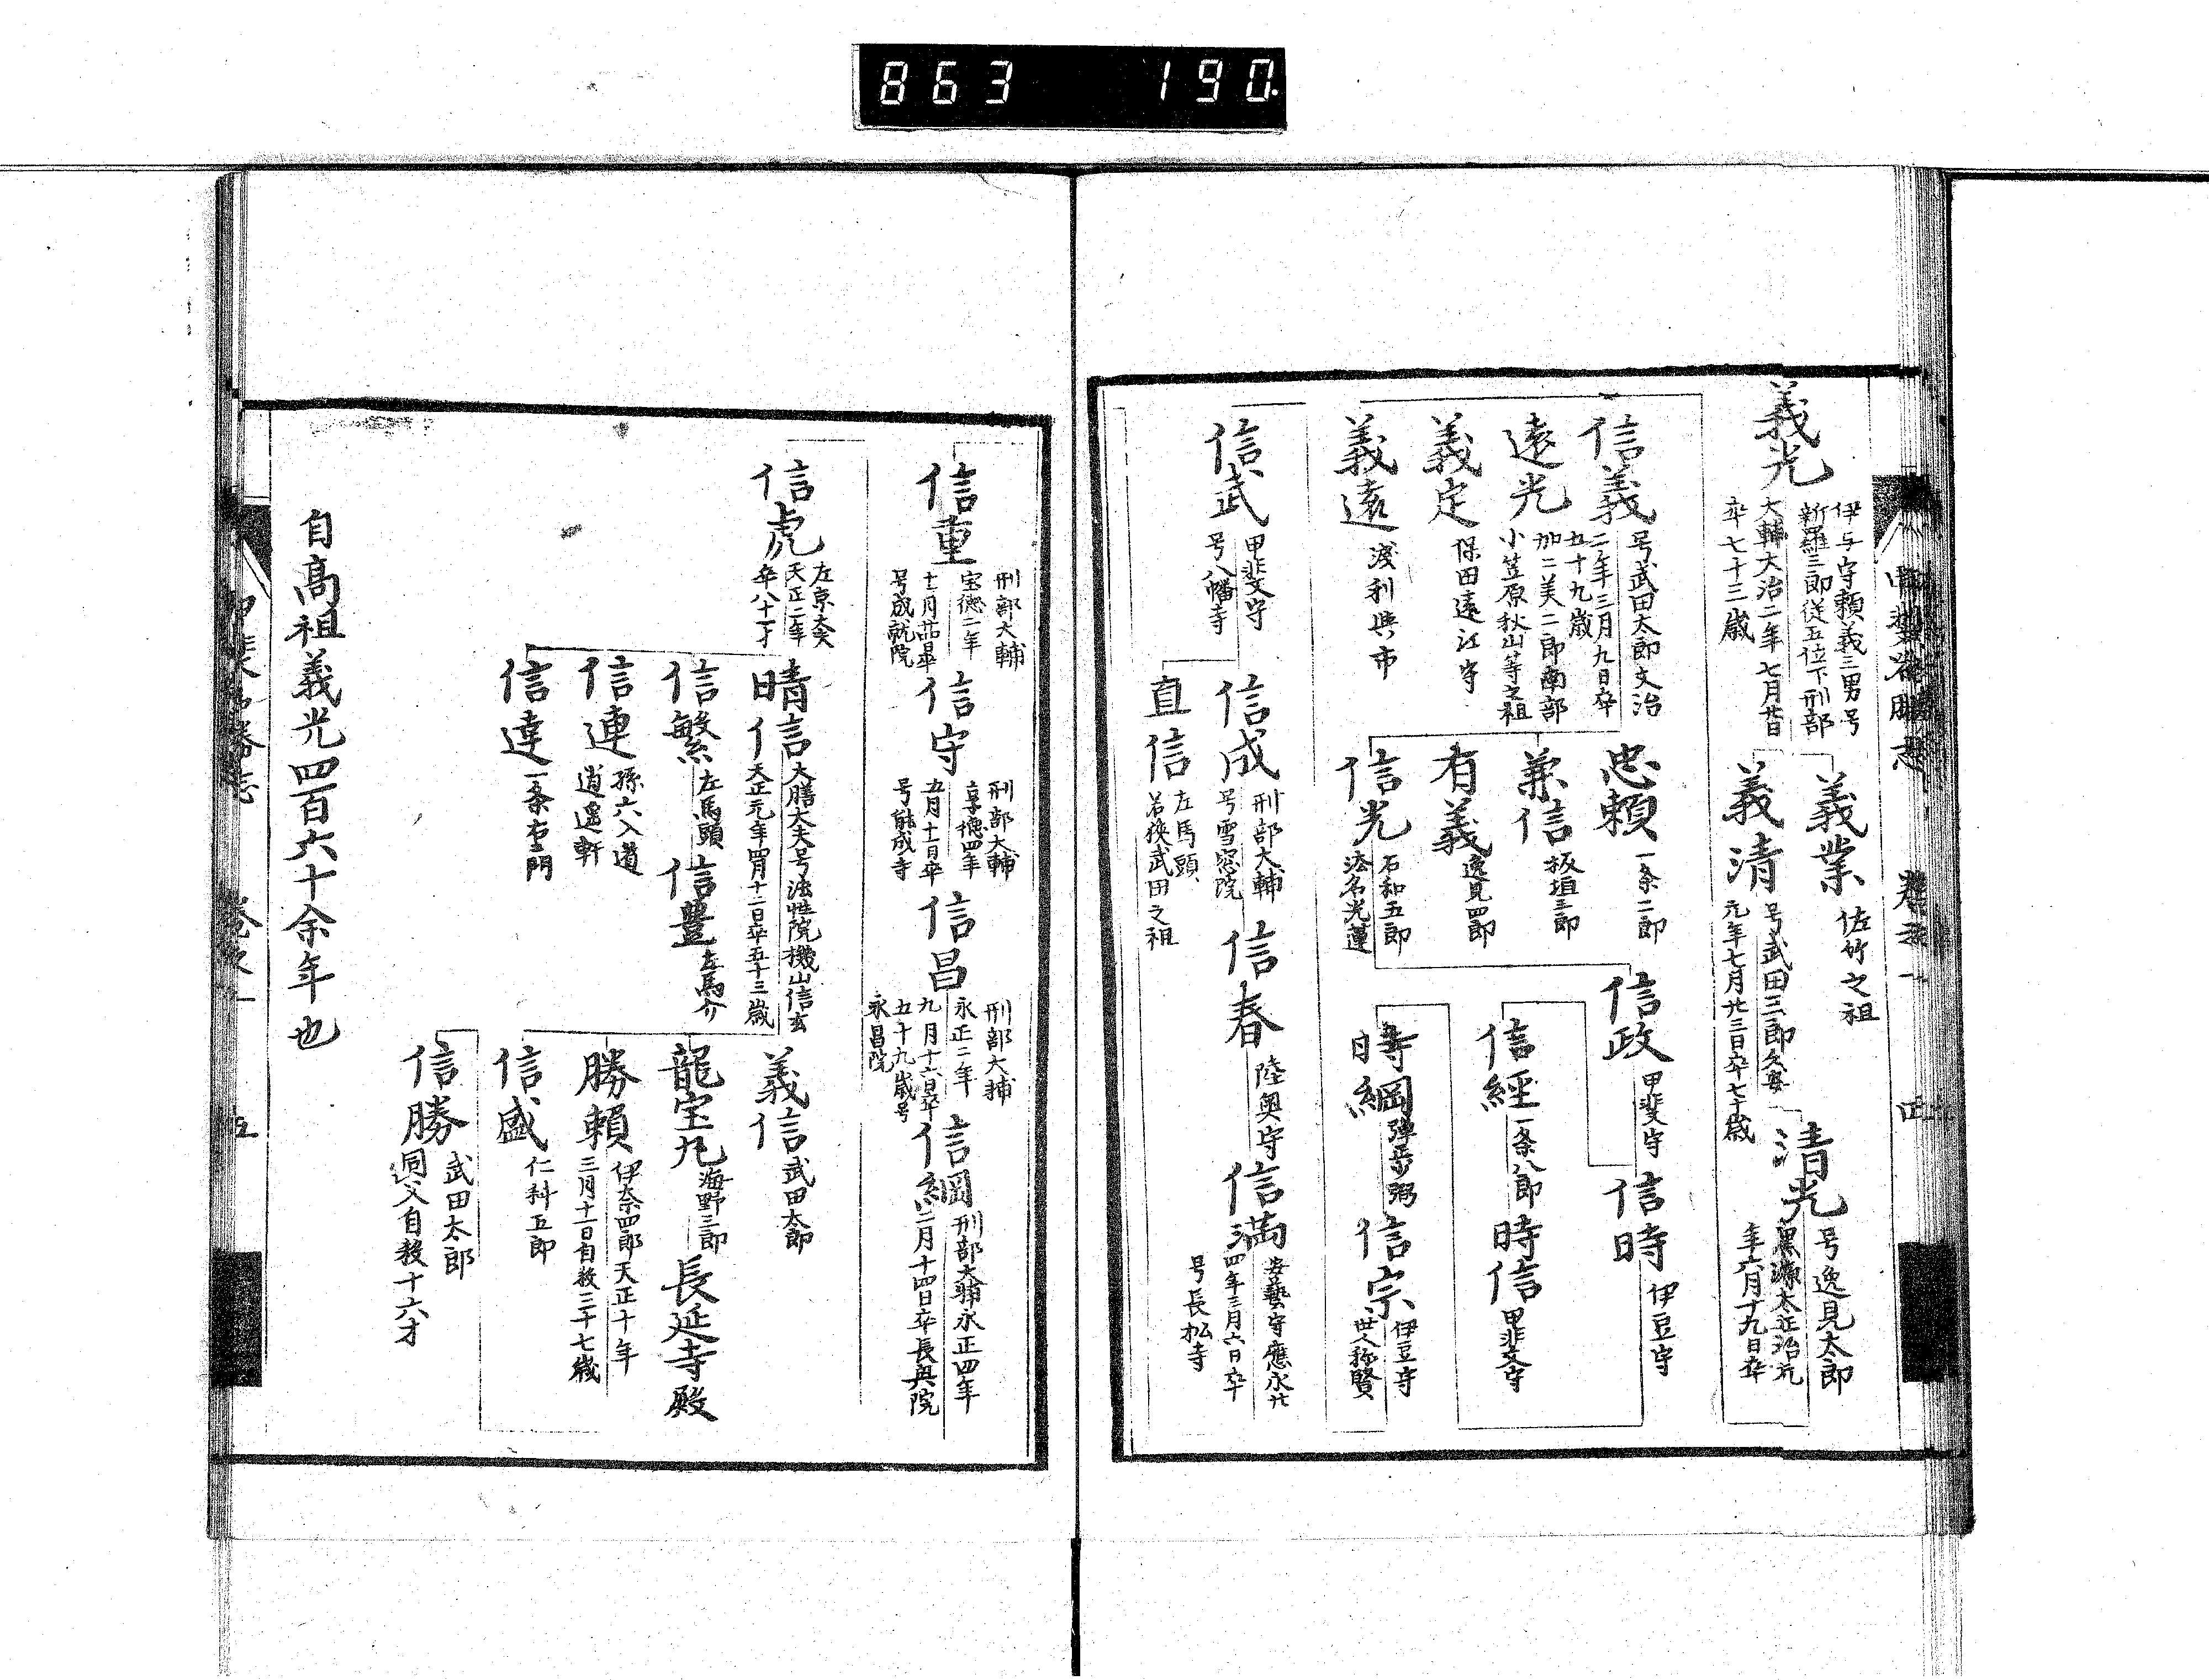 863 190.
義光
伊与守頼義三男号
新羅三郎従五位下刑部
大輔大治二年七月廿日
卒七十三歳
義業
佐竹之祖
義清
号武田三郎久安
元年七月廿三日卒七十歳
清光
号逸見太郎
黒源太正治元
年六月十九日卒
信義
号武田太郎文治
二年三月九日卒
五十九歳
遠光
加々美二郎南部
小笠原秋山等之祖
義定
保田遠江守
義遠
浅利與市
忠頼
一条二郎
兼信
板垣三郎
有義
逸見四郎
信光
石和五郎
法名光蓮
信政
甲斐守
信時
伊豆守
信経
一条八郎
時信
甲斐守
時綱
弾正少弼
信宗
伊豆守
世人称賢
信武
甲斐守
号八幡寺
信成
刑部大輔
号雪窓院
直信
左馬頭
若狭武田之祖
信春
陸奥守
信満
安藝守應永廿
四年三月六日卒
号長松寺
信重
刑部大輔
宝徳二年
号成就院
信守
刑部大輔
享徳四年
五月十一日卒
号能成寺
信昌
刑部大輔
永正二年
九月十六日卒
五十九歳号
永昌院
信綱
刑部大輔永正四年
二月十四日卒長興院
信虎
左京大夫
天正二年
卒八十一才
晴信
大膳大夫号法性院機山信玄
天正元年四月十二日卒五十三歳
信繁
左馬頭
信豊
左馬介
信連
孫六入道
逍遥軒
信達
一条右衛門
義信
武田太郎
龍宝丸
海野三郎
長延寺殿
勝頼
伊奈四郎天正十年
三月十一日自殺三十七歳
信盛
仁科五郎
信勝
武田太郎
同父自殺十六才
自高祖義光四百六十余年也
五